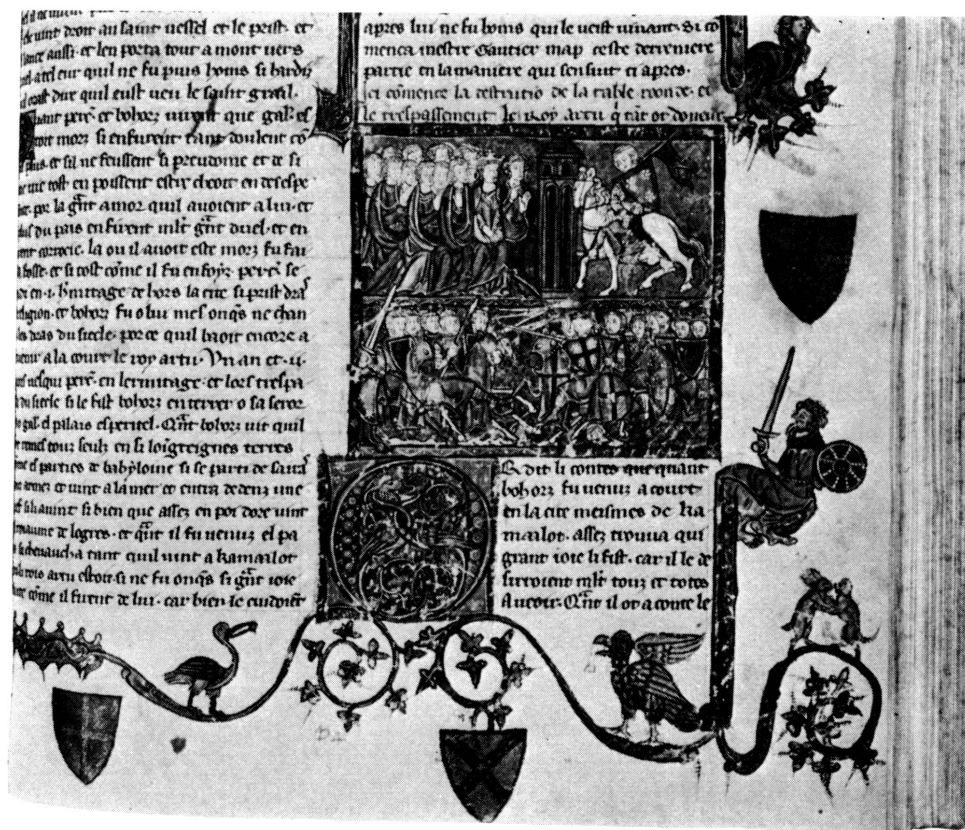 ele vint droit au saint vessel et le prist et
lance aussi et len porta tout a mont vers
ciel a tel eur quil ne fu puis homs si hardiz
quil osast dire quil eust veu le saint graal
Quant perc et bohorz virent que gal es
toit morz si enfurent tant doulent co
plus et sil ne feussent si preudome et de si
vie tost en poussent estre cheoit en desespe
por la gnt amor quil avoient a lui et
du pais en firent mlt gnt duel et en
corrocie la ou il avoit este morz fu fai
fosse et si tost come il fu enfoyz perc se
en i hmitage de hors la cite si prist dras
religion et bohorz fu o lui mes onqs ne chan
les dras du siecle por ce quil baoit encore a
venir a la court le roy artu Un an et ii
vesqui perc en lermitage et lors trespa
du siecle si le fist bohorz en terrer o sa seror
gal el palais esperitel Qnt bohorz vit quil
remes tout seulz en si loigteignes terres
es parties de babyloine si se parti de sarraz
armez et vint a la mer et entra dedenz une
si li avint si bien que assez en poi dore vint
reaume de logres et qnt il fu venuz el pa
si chevaucha tant quil vint a kamaalot
rois artu estoit si ne fu onqs si gnt ioie
come il firent de lui car bien le cuidoient
apres lui ne fu homs qui le veist vivant Si co
menca mestre Gautier map ceste derreniere
partie en la maniere qui sensuit ci apres
ci comence la destrutio de la table ronde et
le trespassement le roy artu q tat ot doneur
Or dit li contes que quant
bohorz fu venuz a court
en la cite meismes de ka
maalot assez trouva qui
grant ioie li fist car il le de
sirroient mlt touz et totes
A veoir Qnt il ot a conte le